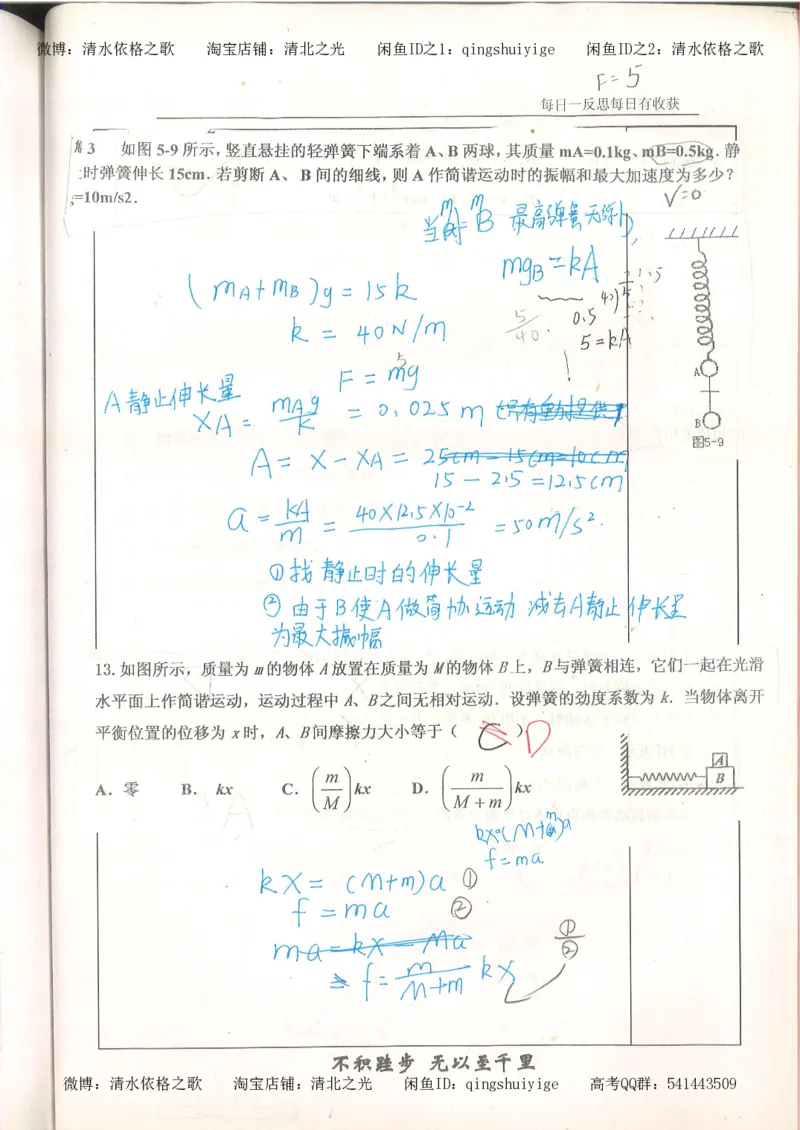 微博：清水依格之歌 淘宝店铺：清北之光 闲鱼ID之1：qingshuiyige 闲鱼ID之2：清水依格之歌
F=5
每日一反思每日有收获
3 如图 5-9 所示，竖直悬挂的轻弹簧下端系着 A、B 两球，其质量 mA=0.1kg、mB=0.5kg．静
时弹簧伸长 15cm．若剪断 A、 B 间的细线，则 A 作简谐运动时的振幅和最大加速度为多少？
=10m/s2．
V=0
最高弹簧无弹力,
mgB=kA
(mA+mB)g=15k
k = 40N/m
5/40
0.5
5=kA
F=mg
A
B
图5-9
A静止伸长量
XA= mAg/k = 0.025m
A= X-XA= 25cm-15cm=10cm
15-2.5=12.5cm
a= kA/m = 40×12.5×10-2/0.1 =50m/s².
①找静止时的伸长量
②由于B使A做简协运动 减去A静止伸长量
为最大振幅
13. 如图所示，质量为 m 的物体 A 放置在质量为 M 的物体 B 上，B 与弹簧相连，它们一起在光滑
水平面上作简谐运动，运动过程中 A、B 之间无相对运动．设弹簧的劲度系数为 k．当物体离开
平衡位置的位移为 x 时，A、B 间摩擦力大小等于（ C ）D
A
B
A．零 B． kx C．(m/M)kx D．(m/(M+m))kx
kx=(M+m)a
f=ma
kx= (M+m)a ①
f=ma ②
ma=kx-Ma
①/②
f= m/(M+m) kx
不积跬步 无以至千里
微博：清水依格之歌 淘宝店铺：清北之光 闲鱼ID：qingshuiyige 高考QQ群：541443509